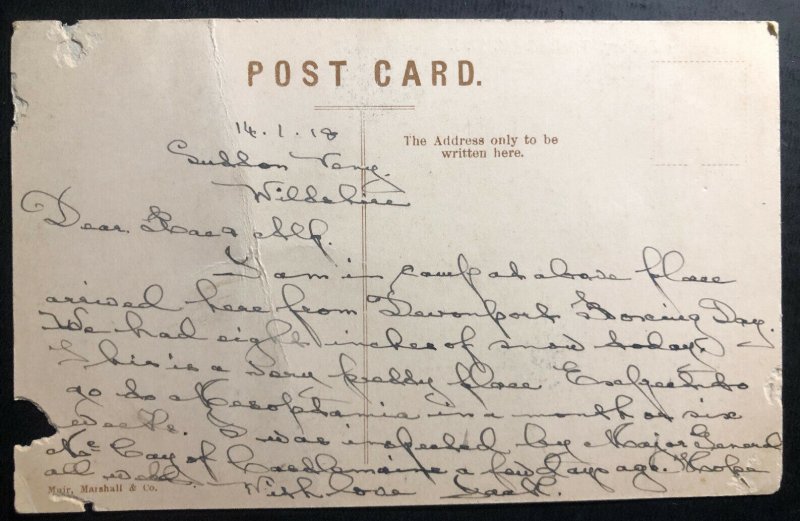 POST CARD.
The Address only to be
written here.
14.1.18
Sutton Veny.
Wiltshire
Dear & Alf.
I am in camp at above place
arrived here from Devonport Boxing Day.
We had eight inches of snow today.
This is a very pretty place Expect to
go to Mesoptamia in a month or six
weeks. I was inspected by Major General
McCay of Castlemaine a few days ago. Hope
all well. With love Jack.
Muir, Marshall & Co.